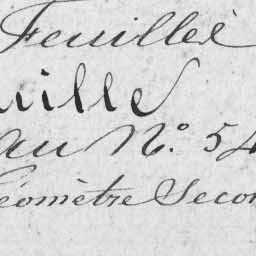 Feuille
uille
au N.º 54
éomètre Secon